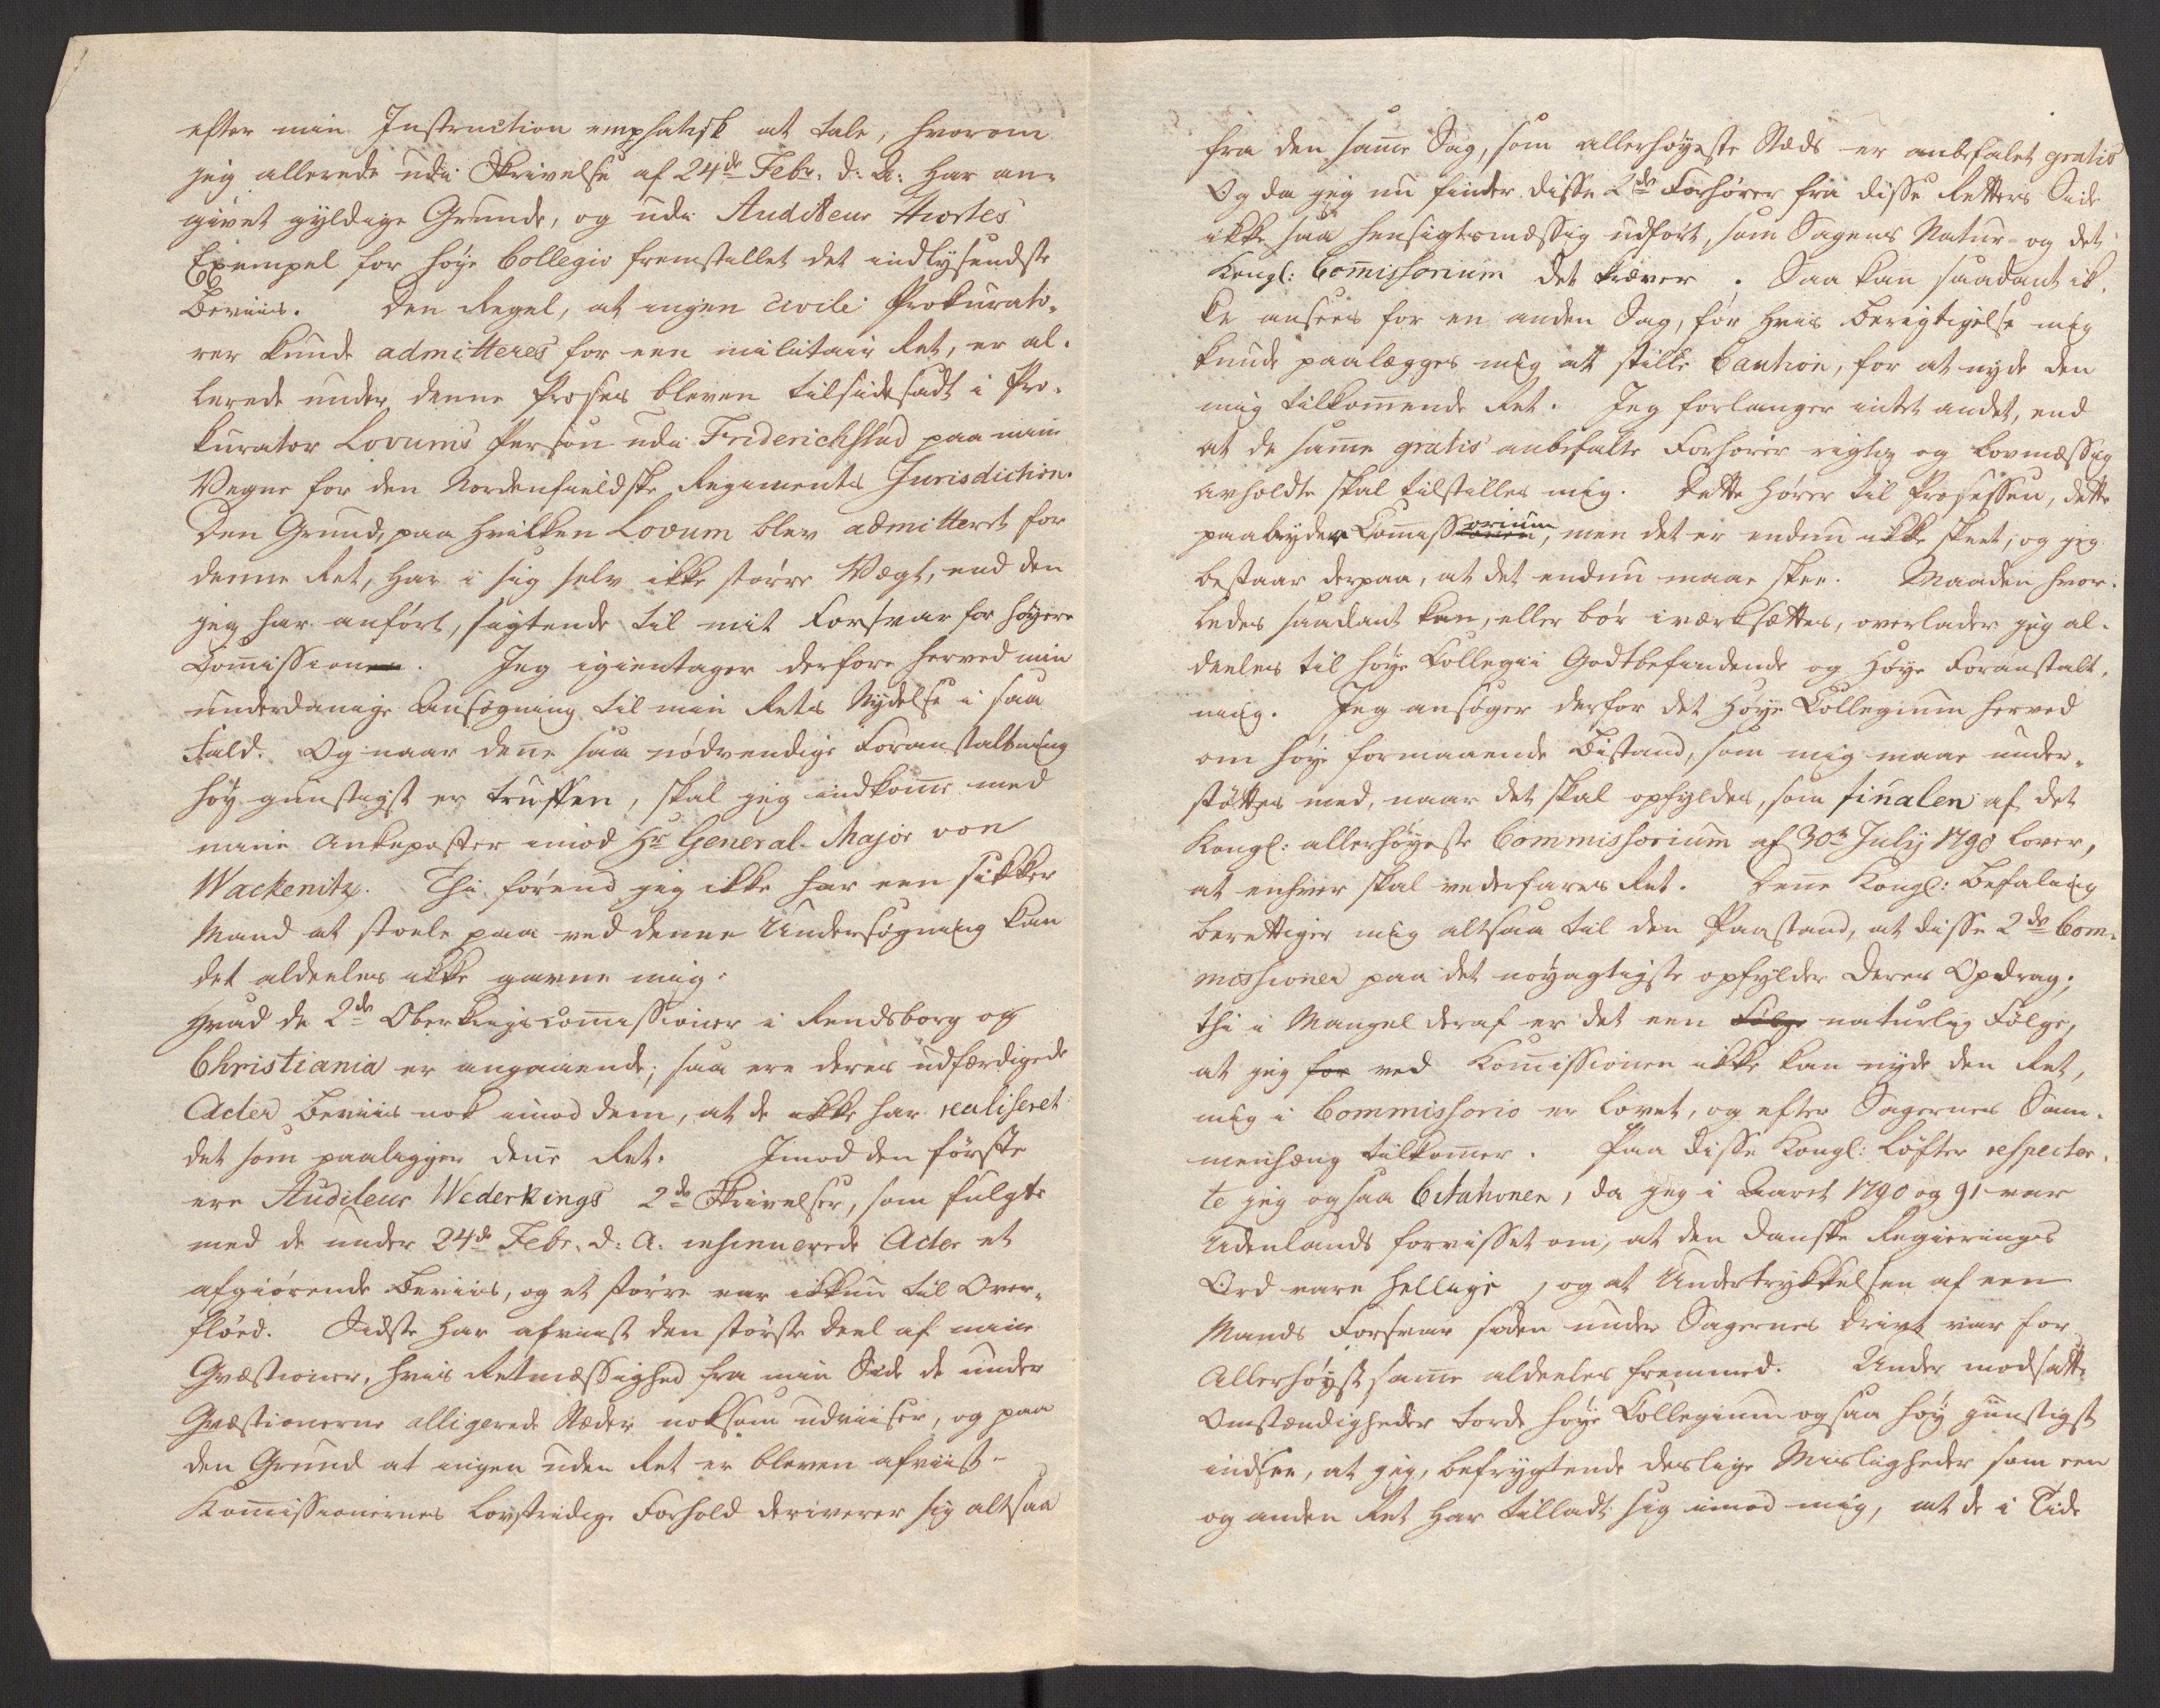 efter min Instruction emphatisk at tale, hvorom
jeg allerede udi Skrivelse af 24de Febr: d: A: har an-
givet gyldige Grunde, og udi Auditeur Hiortes
Exempel for høye Collegio fremstillet det indlysendste
Beviis. Den Regel, at ingen civile Prokurato-
rer kunde admitteres for een militair Ret, er al-
lerede under denne Proses bleven tilsidesadt i Pro-
kurator Lovums Person udi Friderichstad paa min
Vegne for den Nordenfieldske Regiments Jurisdiction.
Den Grund, paa hvilken Lovum blev admitteret for
denne Ret, har i sig selv ikke større Vægt, end den
jeg har anført, sigtende til mit Forsvar for høyere
Com̅ission. Jeg igientager derfore herved min
underdanige Ansøgning til min Rets Nydelse i saa
Fald. Og naar den̅e saa nødvendige Foranstaltning
høy gunstigst er truffen, skal jeg indkom̅e med
mine Ankeposter imod Hr General-Major von
Wackenitz. Thi førend jeg ikke har een sikker
Mand at stoele paa ved denne Undersøgning kan
det aldeeles ikke gavne mig.
Hvad de 2de Oberkrigscom̅issioner i Rendsborg og
Christiania er angaaende; saa ere deres udfærdigede
Acter Beviis nok imod dem, at de ikke har realiseret
det som paaligger den̅e Ret. Imod den første
ere Auditeur Wederkings 2de Skrivelser, som fulgte
med de under 24de Febr. d: A: insinuerede Acter et
afgiørende Beviis, og et større var ikkun til Over-
flød. Sidste har afviist den største Deel af mine
Qvæstioner, hvis Retmæssighed fra min Side de under
Qvæstionerne alligerede Stæder noksom udviiser, og paa
den Grund at ingen uden Ret er bleven afviist-
Kom̅issionernes lovstridige Forhold deriverer sig altsaa
fra den sam̅e Sag, som allerhøyeste Stæds er anbefalet gratis
Og da jeg nu finder disse 2de Forhører fra disse Retters Side
ikke saa hensigtsmæssig udført, som Sagens Natur og det
Kongl: Com̅issorium det kræver. Saa kan saadant ik-
ke ansees for en anden Sag, for hvis Berigtigelse mig
kunde paalægges mig at stille Caution, for at nyde den
mig tilkom̅ende Ret. Jeg forlanger intet andet, end
at de sam̅e gratis anbefalte Forhører rigtig og lovmæssig
avholdte skal tilstilles mig. Dette hører til Prosessen, dette
paabyder Com̅issorium, men det er endnu ikke skeet; og jeg
bestaar derpaa, at det endnu maae skee. Maaden hvor-
ledes saadant kan, eller bør iværksættes, overlader jeg al-
deeles til høye Collegii Godtbefindende og høye Foranstalt-
ning. Jeg ansøger derfor det høye Collegium herved
om høye formaaende Bistand, som mig maae under-
støttes med, naar det skal opfyldes, som finalen af det
Kongl: allerhøyeste Commissorium af 30te July 1790 lover,
at enhver skal vederfares Ret. Den̅e Kongl: Befaling
berettiger mig altsaa til den Paastand, at disse 2de Com-
missioner paa det nøyagtigste opfylder deres Opdrag;
thi i Mangel deraf er det een Følge naturlig Følge,
at jeg for ved Kom̅issionen ikke kan nyde den Ret,
mig i Commissorio er lovet, og efter Sagernes Sam-
menhæng tilkom̅er. Paa disse Kongl: Løfter respecter-
te jeg ogsaa Citationen, da jeg i Aaret 1790 og 91 var
Udenlands forvisset om, at den danske Regierings
Ord vare hellige, og at Undertrykkelsen af een
Mands Forsvar siden under Sagernes Drivt var for
Allerhøyst sam̅e aldeeles fremmed. Under modsatte
Omstændigheder torde høye Collegium ogsaa høy gunstigst
indsee, at jeg, befrygtende deslige Misligheder som een
og anden Ret har tilladt sig imod mig, at de i Tide